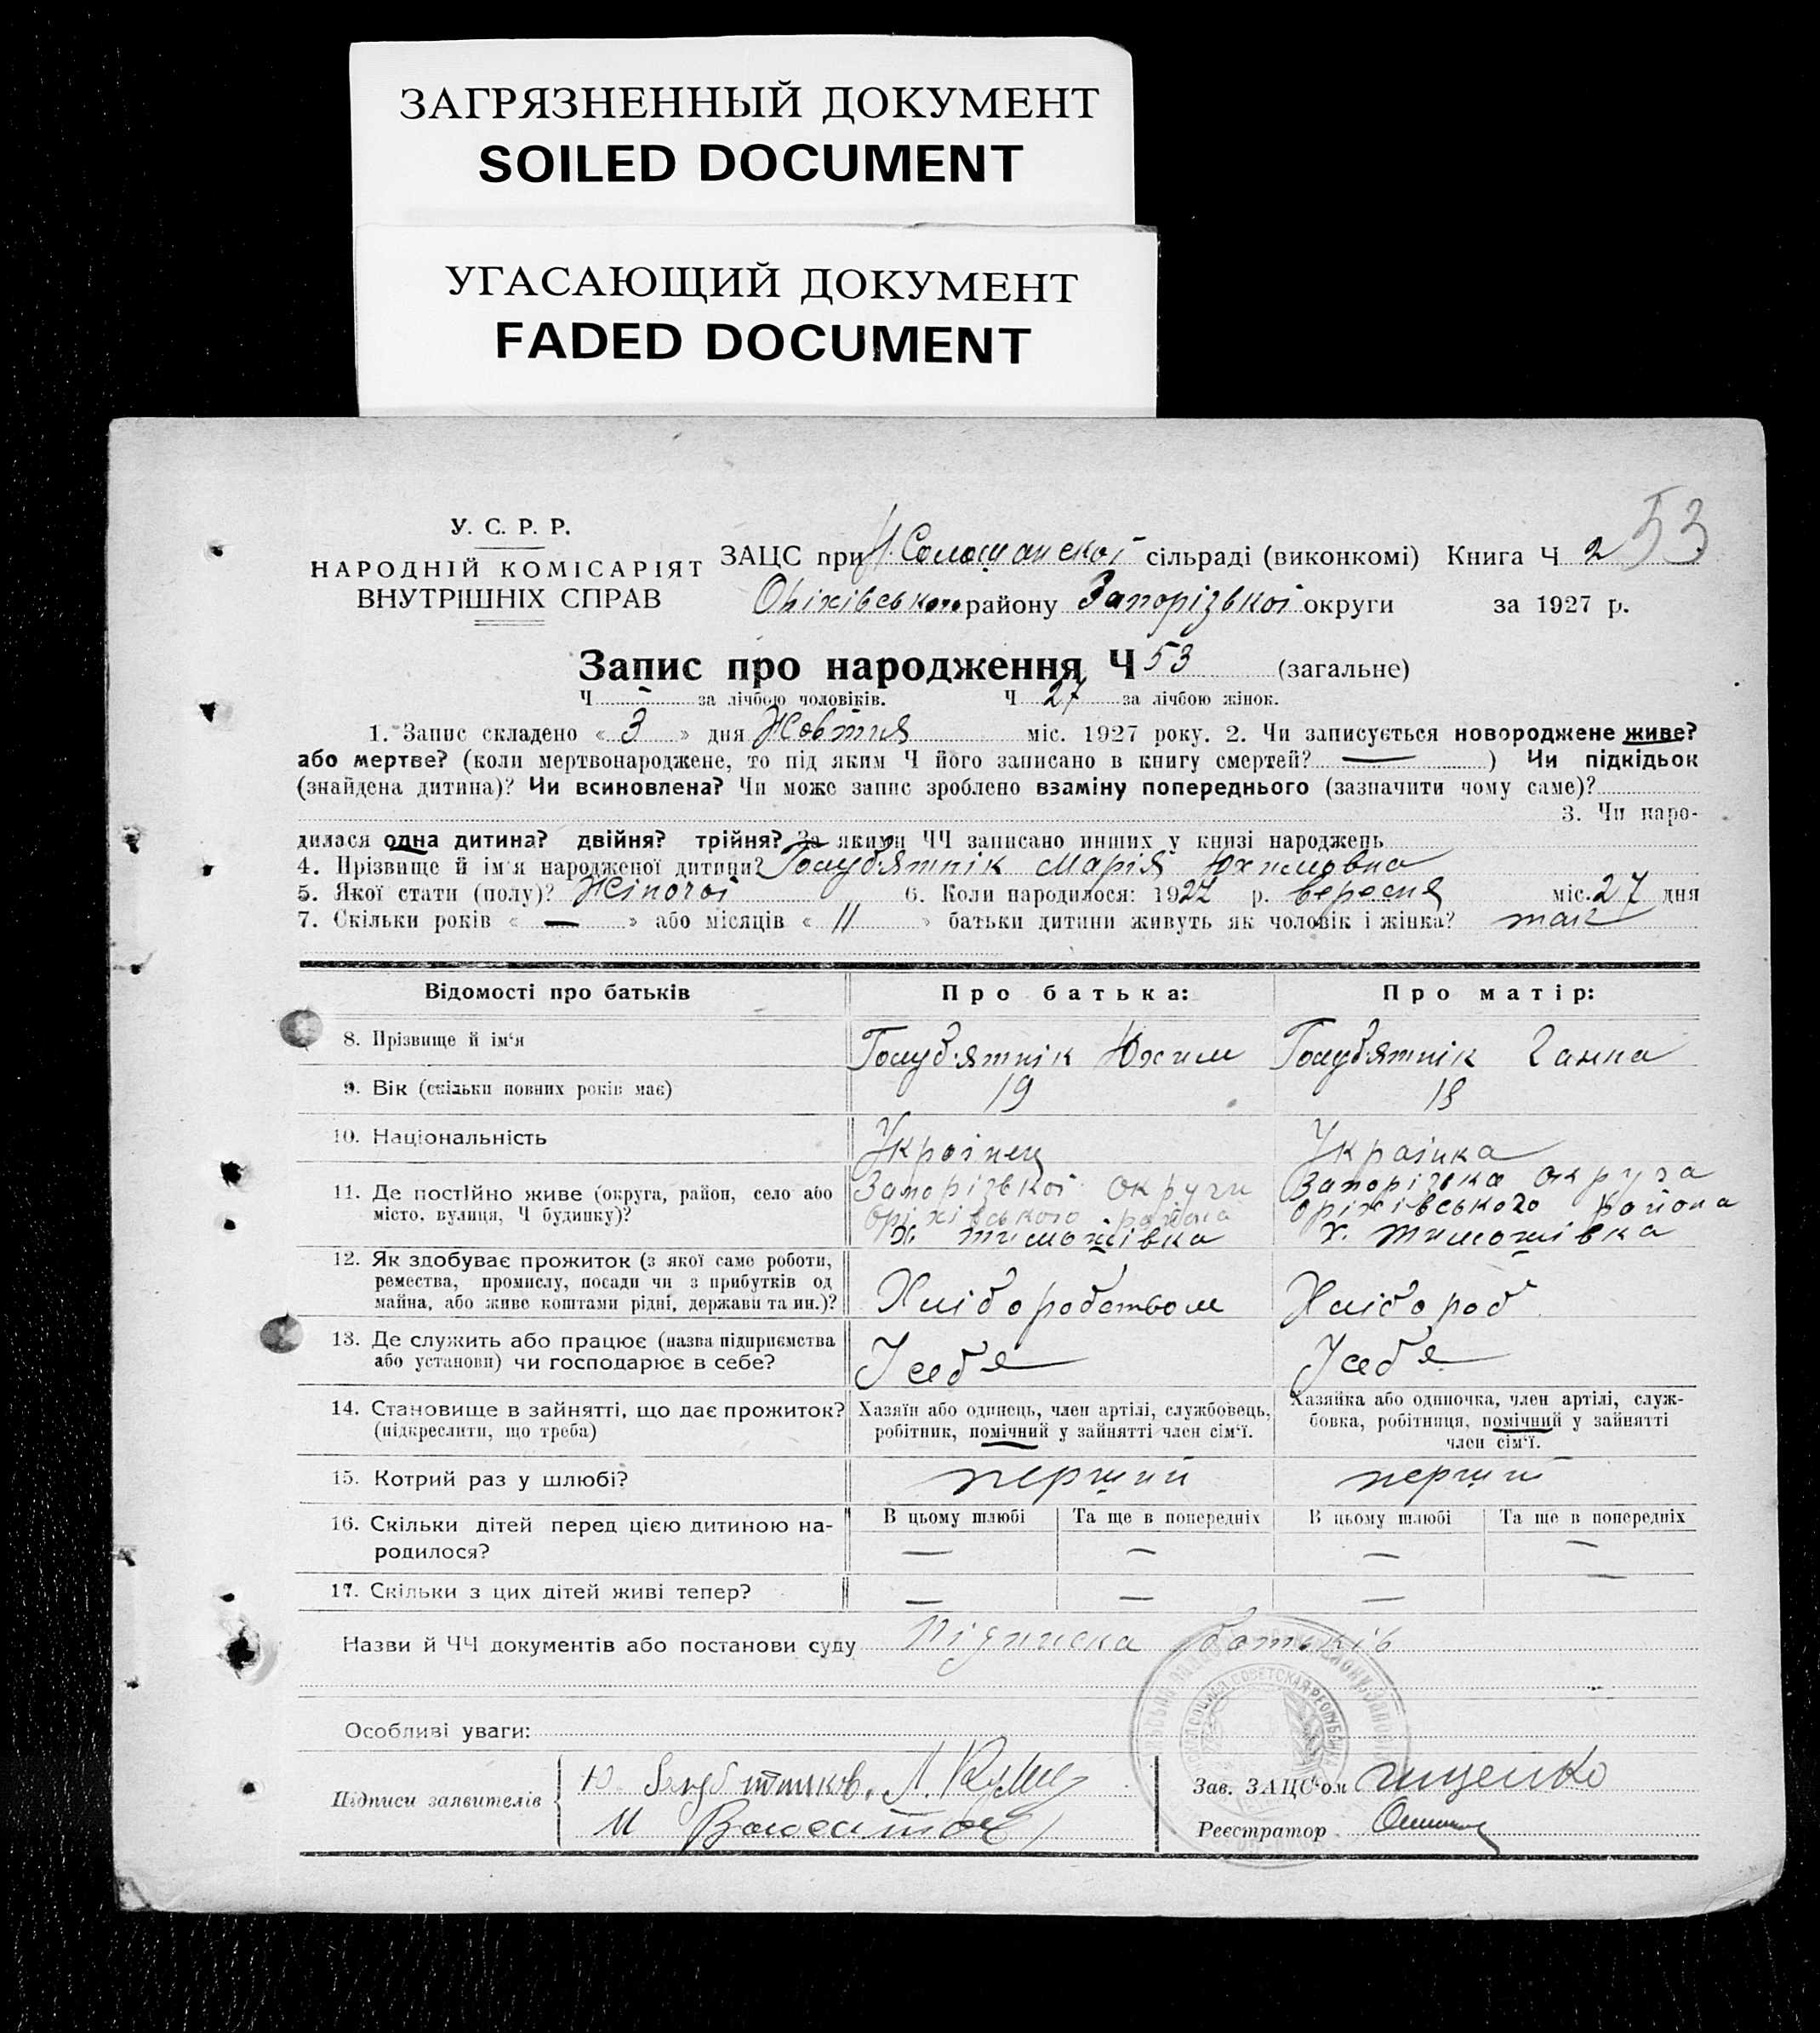 ЗАГРЯЗНЕННЫЙ ДОКУМЕНТ
SOILED DOCUMENT
УГАСАЮЩИЙ ДОКУМЕНТ
FADED DOCUMENT
53
У. С. Р. Р.
НАРОДНІЙ КОМІСАРІЯТ
ВНУТРІШНІХ СПРАВ
ЗАЦС при сільраді (виконкомі) Книга Ч 2
Оріхівського району Запорізької округи за 1927 р.
Запис про народження Ч 53 (загальне)
Ч - за лічбою чоловіків. Ч 27 за лічбою жінок.
1. Запис складено « 3 » дня Жовтня міс. 1927 року. 2. Чи записується новороджене живе?
або мертве? (коли мертвонароджене, то під яким Ч його записано в книгу смертей? — ) Чи підкідьок
(знайдена дитина)? Чи всиновлена? Чи може запис зроблено взаміну попереднього (зазначити чому саме)?
3. Чи наро-
дилася одна дитина? двійня? трійня? За якими ЧЧ записано инших у книзі народжень
4. Прізвище й ім'я народженої дитини? Голуб'ятнік Марія Юхимовна
5. Якої стати (полу)? Жіночої 6. Коли народилося: 1927 р. вересня міс. 27 дня
7. Скільки років « — » або місяців « 11 » батьки дитини живуть як чоловік і жінка? так
Відомості про батьків Про батька: Про матір:
8. Прізвище й ім'я Голуб'ятнік Юхим Голуб'ятнік Ганна
9. Вік (скільки повних років має) 19 18
10. Національність Українец Українка
11. Де постійно живе (округа, район, село або Запорізької округи Запорізька округа
місто, вулиця, Ч будинку)? Оріхівського района Оріхівського района
х. Тимошівка х. Тимошівка
12. Як здобуває прожиток (з якої саме роботи,
ремества, промислу, посади чи з прибутків од
майна, або живе коштами рідні, держави та ин.)? Хліборобством Хлібороб
13. Де служить або працює (назва підприємства
або установи) чи господарює в себе? У себе У себе
14. Становище в зайнятті, що дає прожиток? Хазяїн або одинець, член артілі, службовець, Хазяйка або одиночка, член артілі, служ-
(підкреслити, що треба) робітник, помічний у зайнятті член сім'ї. бовка, робітниця, помічний у зайнятті
член сім'ї.
15. Котрий раз у шлюбі? перший перший
16. Скільки дітей перед цією дитиною на- В цьому шлюбі Та ще в попередніх В цьому шлюбі Та ще в попередніх
родилося? — — — —
17. Скільки з цих дітей живі тепер? — — — —
Назви й ЧЧ документів або постанови суду Підписка батьків
Особливі уваги:
Підписи заявителів
Зав. ЗАЦС'ом
Реєстратор